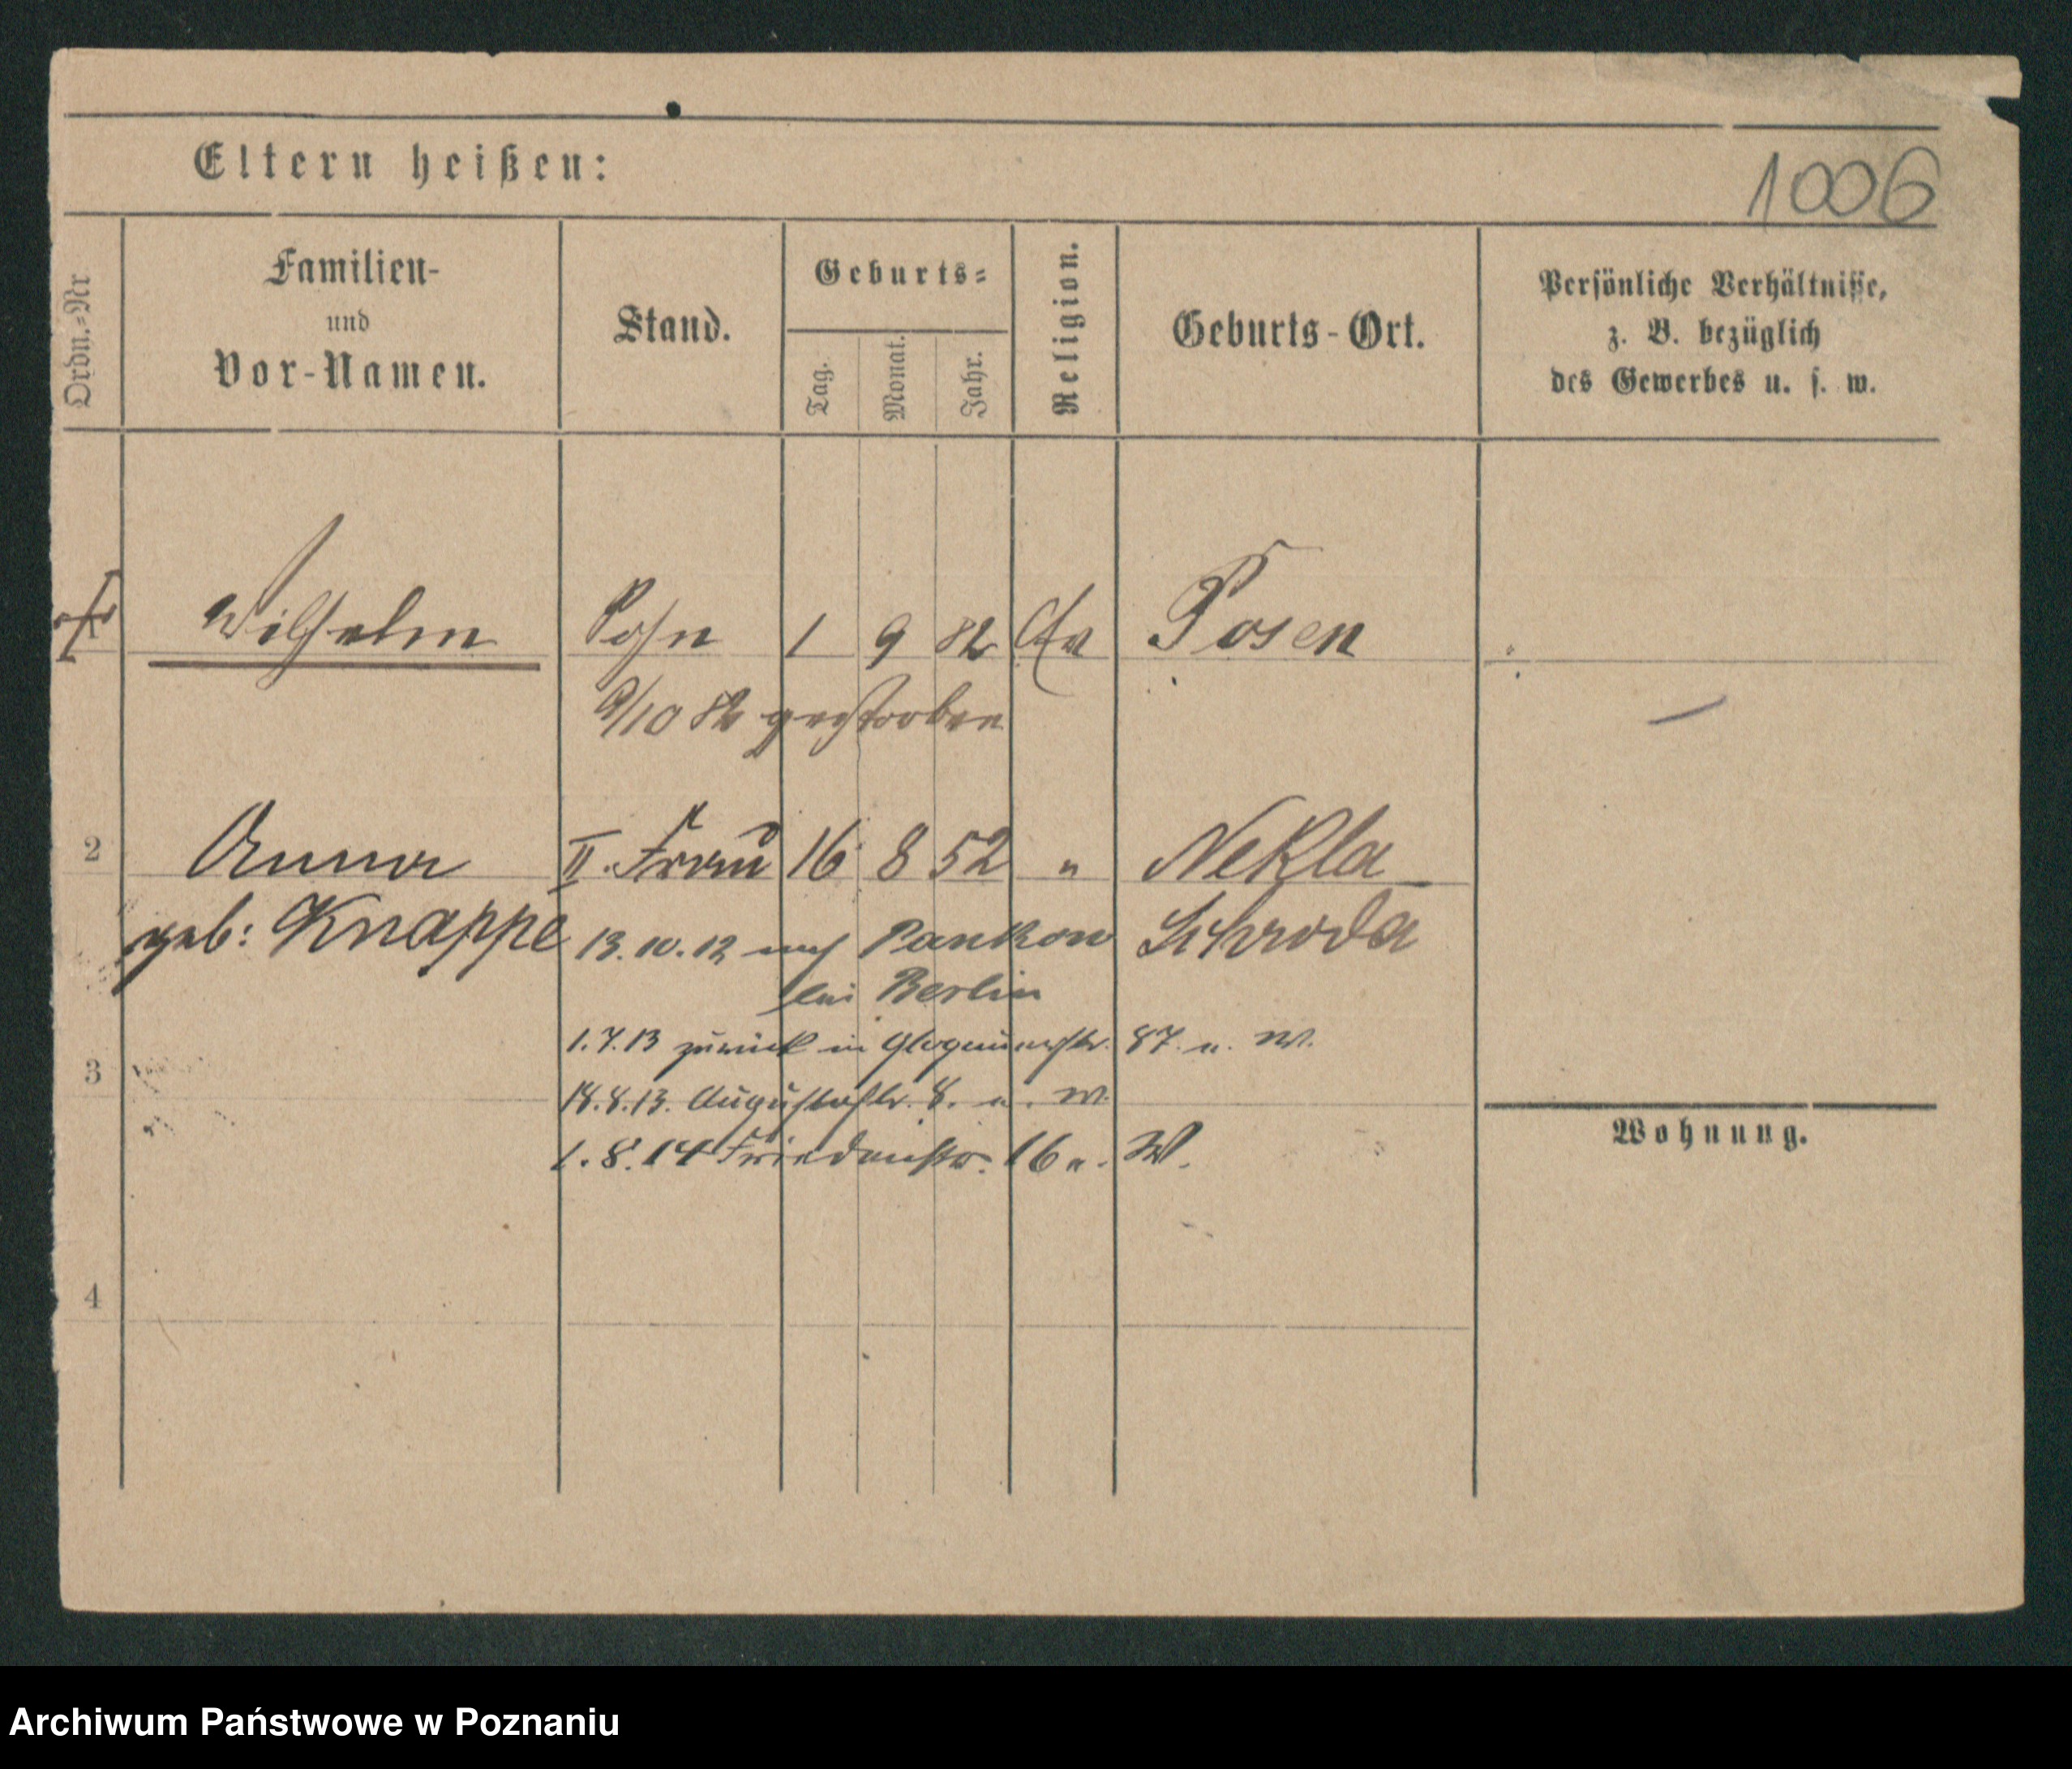 Eltern heißen:
1006
Ordn.-Nr
Familien-
und
Vor-Namen.
Stand.
Geburts-
Tag.
Monat.
Jahr.
Religion.
Geburts-Ort.
Persönliche Verhältniße,
z. B. bezüglich
des Gewerbes u. s. w.
Wilhelm Sohn 1 9 82 Ev Posen
9/10 82 gestorben
2 Anna II. Frau 16 8 52 " Nekla
geb: Knappe 13.10.12 nach Pankow Schroda
bei Berlin
1.7.13 zurück in Glogauerstr. 87 n. W.
3
18.8.13. Augustastr. 8. n. W.
Wohnung.
1.8.14 Friedenstr. 16 n. W.
4
Archiwum Państwowe w Poznaniu